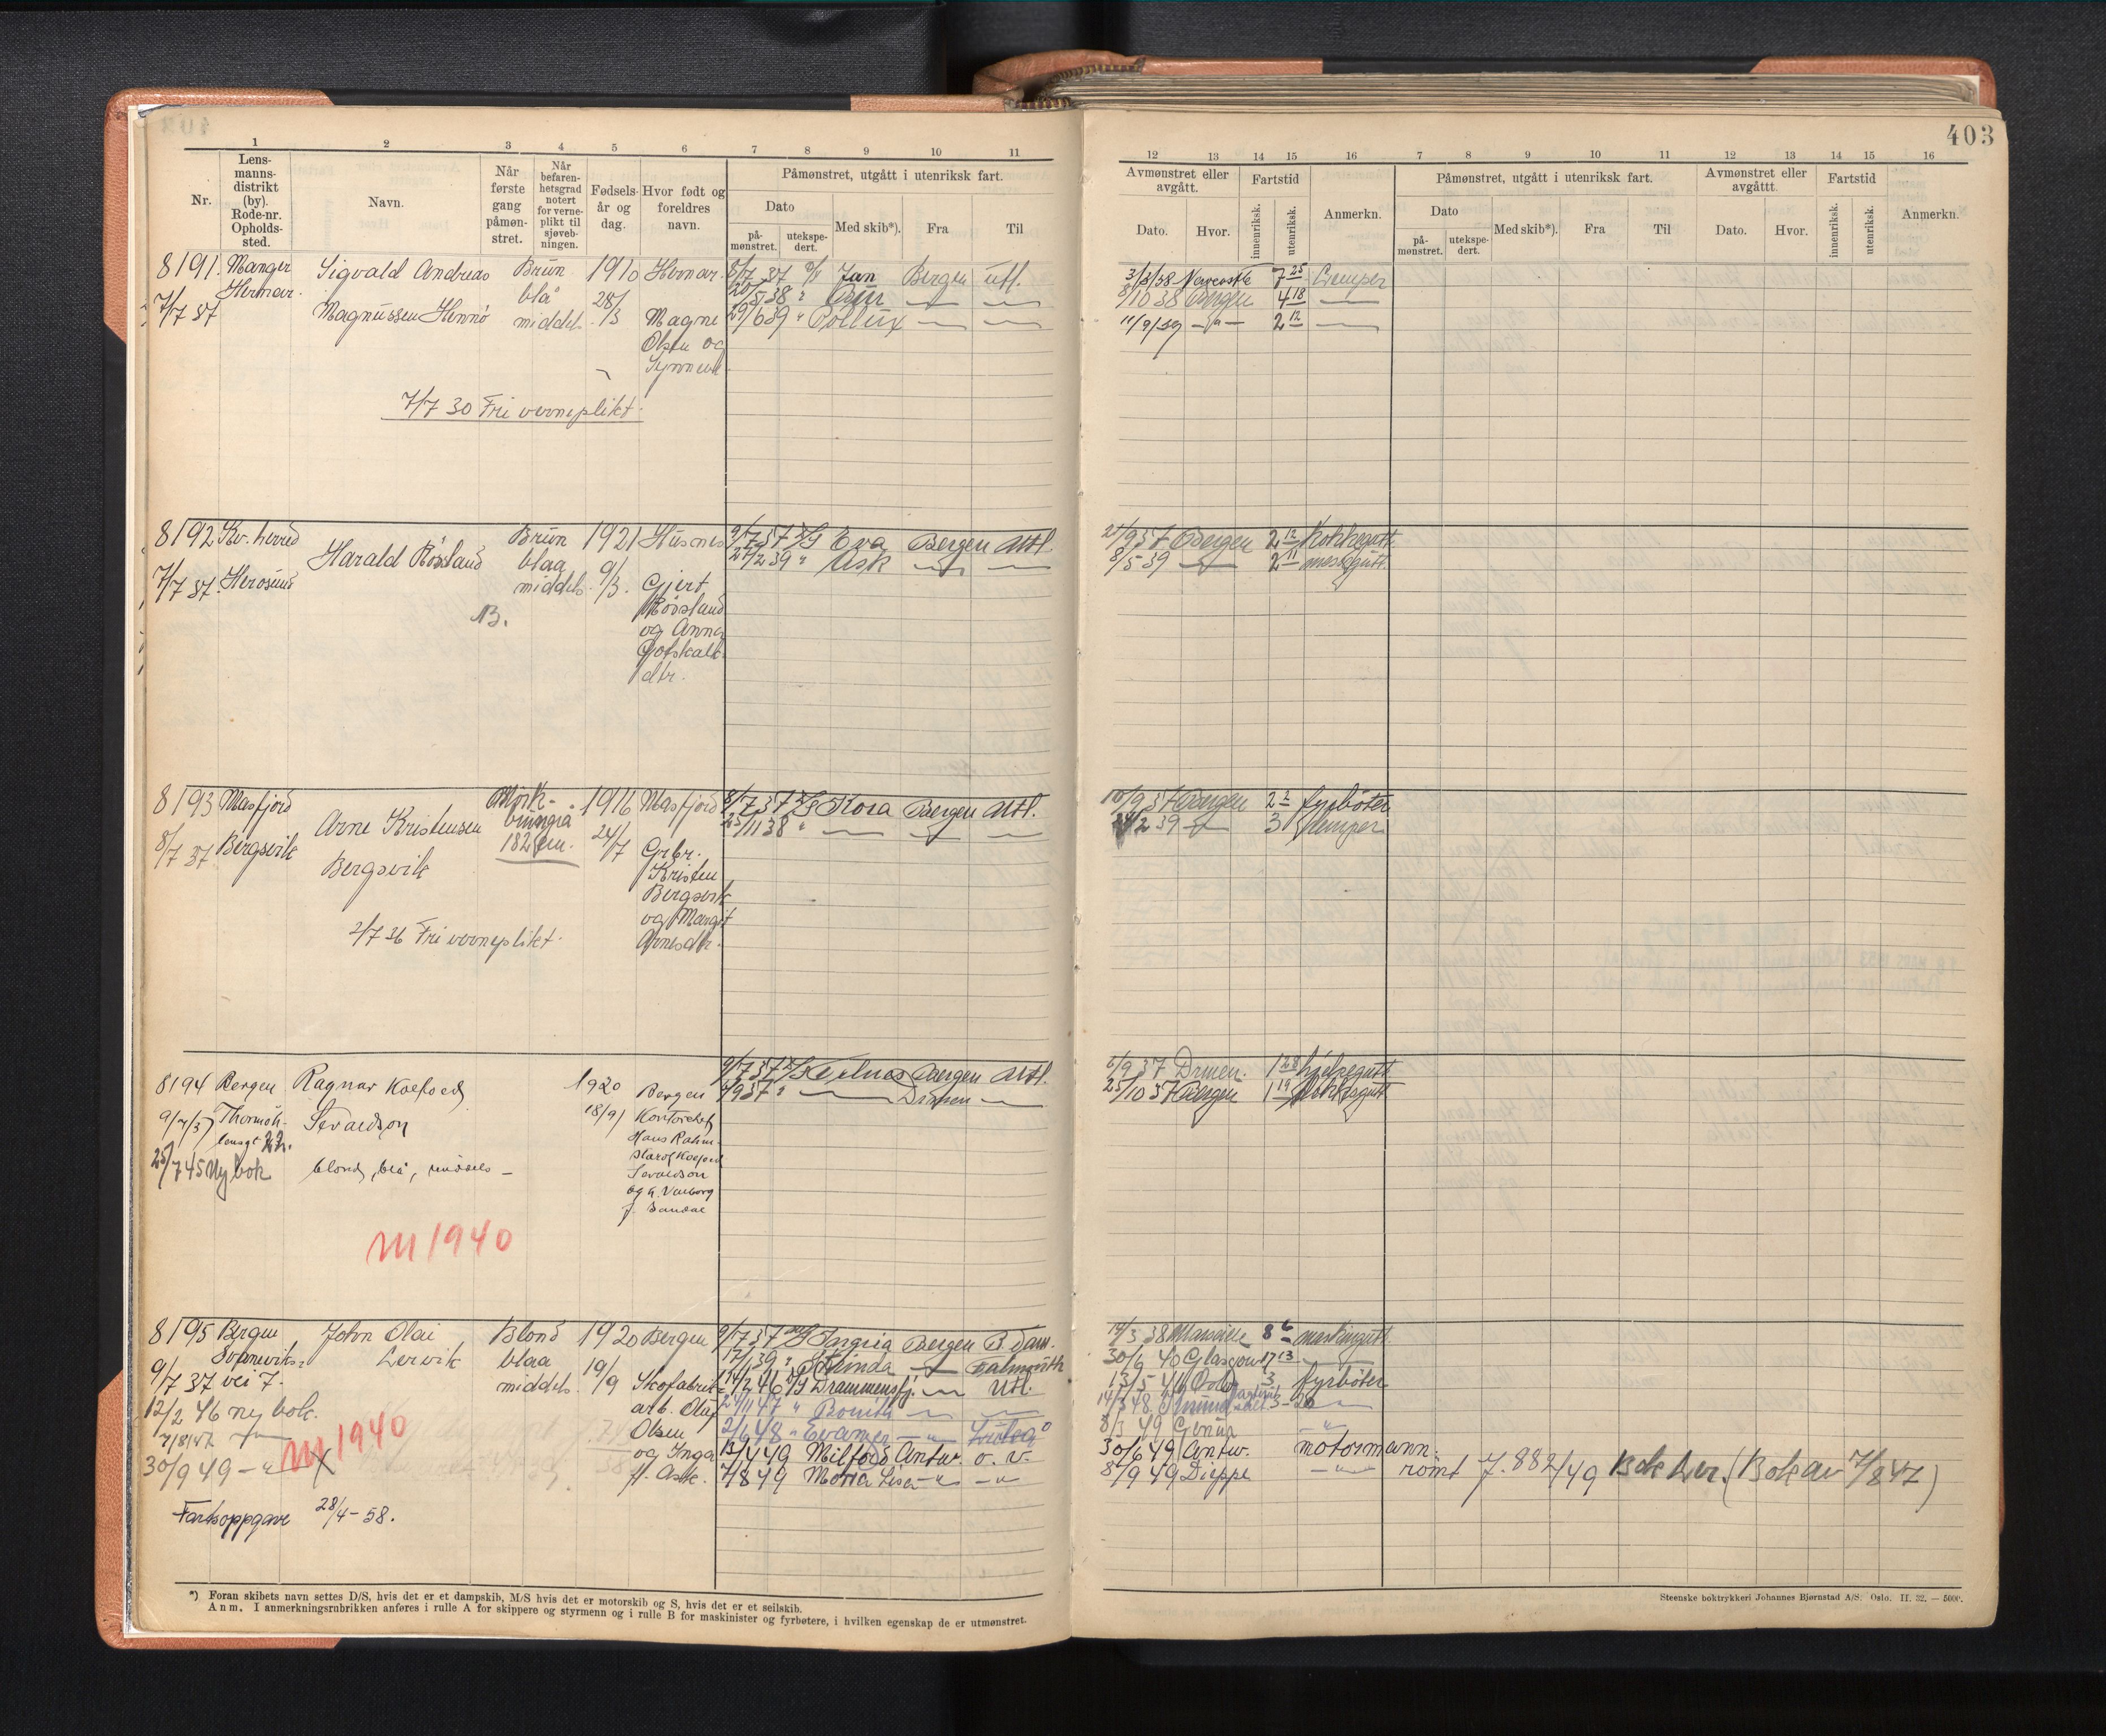 403
1 2 3 4 5 6 7 8 9 10 11
Nr.
Lens-
manns-
distrikt
(by).
Rode-nr.
Opholds-
sted.
Navn.
Når
første
gang
påmøn-
stret.
Når
befaren-
hetsgrad
notert
for verne-
plikt til
sjøveb-
ningen.
Fødsels-
år og
dag.
Hvor født og
foreldres
navn.
Påmønstret, utgått i utenriksk fart.
Dato
på-
mønstret.
utekspe-
dert.
Med skib*).
Fra
Til
12 13 14 15 16 7 8 9 10 11 12 13 14 15 16
Avmønstret eller
avgått.
Dato.
Hvor.
Fartstid
innenriksk.
utenriksk.
Anmerkn.
Påmønstret, utgått i utenriksk fart.
Dato
på-
mønstret.
utekspe-
dert.
Med skib*).
Fra
Til
Avmønstret eller
avgått.
Dato.
Hvor.
Fartstid
innenriksk.
utenriksk.
Anmerkn.
8191. Manger Sigvald Andreas Brun 1910 Hernar 37 Jan Bergen utl.
Hernar. blå 28/3 38
7/7 37 Magnussen Hennø middels Magne 29/6 39 " Pollux
Olsen og
7/7 30 Fri verneplikt.
3/3/38 7 25 Lemper
8/10 38 Bergen 4 18
11/9/39 - " - 2 12
8192 Kv. herred Harald Røssland Brun 1921 Husnes 9/7 37 Eva Bergen Utl.
7/7 37. Herøsund blaa 9/3. 27/2 39 " Ask
middels. Gjert
B. Røssland
og Anna
Gotskalk
dtr.
21/9 37 Bergen 2 12 Kokkegutt
8/5 39 2 11 messegutt.
8193 Masfjord Arne Kristensen Mørk- 1916 Masfjord 8/7 37 Kora Bergen Utl.
8/7 37 Bergsvik Bergsvik 182 cm. 24/7 25/11 38 "
Grbr.
Kristen
Bergsvik
og Margit
Arnesdtr.
2/7 36 Fri verneplikt.
10/9 37 Bergen 2 2 fyrbøter
2 39 3 lemper
8194 Bergen Ragnar Koefoed 1920 Bergen 9/7 37 Bergen Utl.
9/7/37 Sevaldson 18/9 9 37 " Drmen
22. Hans Rahm
25/7 45 Ny bok blond, blå, middels - Koefoed
Sevaldson
m 1940
6/9 37 Drmen. 1 28 hjelpegutt
25/10 37 Bergen 1 19 dekksgutt
8195 Bergen John Olai Blond 1920 Bergen 9/7 37 Bergen
Svaneviks- Lervik blaa 19/9 39 " Falmouth
9/7 37 vei 7. middels. Skofabrik- 46 Drammensfj. Utl.
12/2 46 ny bok. arb. Olaf 47 "
7/8/47 Olsen 2/6 48 "
m 1940 og Inga 13/4 49 Milford Antw. o. v.
30/9 49 - " - f. Ask. 7/8 49
Fartsoppgave 28/4 - 58.
14/3 38 Marseille 8 6 maskingutt
30/6 40 Glasgow 17 13
13/5 46 Oslo 3 fyrbøter
14/3 48
8/3 49 Genua "
30/6 49 Antw. motormann.
8/9 49 Dieppe rømt J. 882/49 Bok Lev. (Bok av 7/8 47)
*) Foran skibets navn settes D/S, hvis det er et dampskib, M/S hvis det er motorskib og S, hvis det er et seilskib.
Anm. I anmerkningsrubrikken anføres i rulle A for skippere og styrmenn og i rulle B for maskinister og fyrbøtere, i hvilken egenskap de er utmønstret.
Steenske boktrykkeri Johannes Bjørnstad A/S. Oslo. II. 32. — 5000.